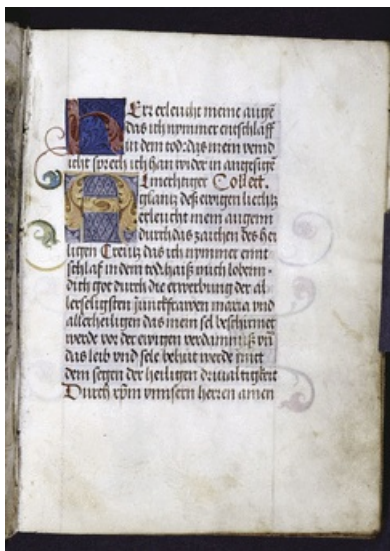 Herr erleucht meine augē
das ich nymmer entschlaff
in dem tod. das mein veind
icht sprech ich han wider in angesigt
Almechtiger Collect.
glantz deß ewigen liechtz
erleucht mein augenn
durch das zaichen des hei
ligen Creutz das ich nymmer ennt
schlaf in dem tod. haiß mich lobein
dich got durch die erwerbung der al
lerseligsten junckfrawen maria vnd
allerheiligen das mein sel beschirmet
werde vor der ewigen verdamnuß vñ
das leib vnd sele behüt werde mit
dem segen der heiligen driualtigkeit
Durch xp̄m vnnsern herren amen